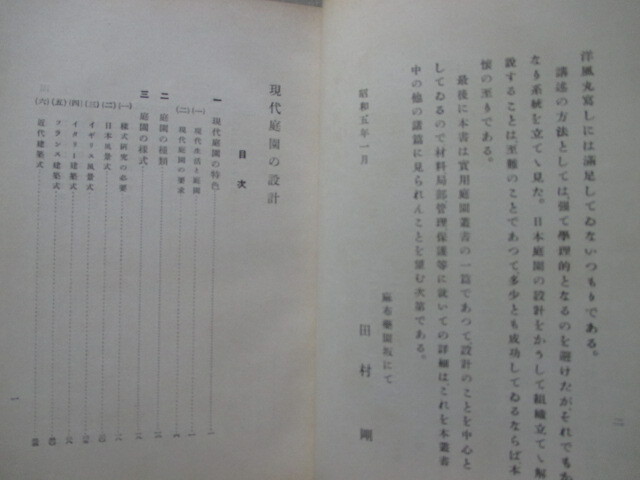 洋風丸寫しには滿足してゐないつもりである。
講述の方法としては、强て學理的となるのを避けたが、それでもか
なり系統を立てゝ見た。日本庭園の設計をかうして組織立てゝ解
說することは、至難のことであつて、多少とも成功してゐるならば本
懷の至りである。
最後に本書は實用庭園叢書の一篇であつて、設計のことを中心と
してゐるので材料局部管理保護等に就いての詳細は、これを本叢書
中の他の諸篇に見られんことを望む次第である。
昭和五年一月
麻布藥園坂にて
田村 剛
二
現代庭園の設計
目次
一 現代庭園の特色
(一) 現代生活と庭園
(二) 現代庭園の要素
二 庭園の種類
三 庭園の樣式
(一) 樣式硏究の必要
(二) 日本風景式
(三) イギリス風景式
(四) イタリー建築式
(五) フランス建築式
(六) 近代建築式
一